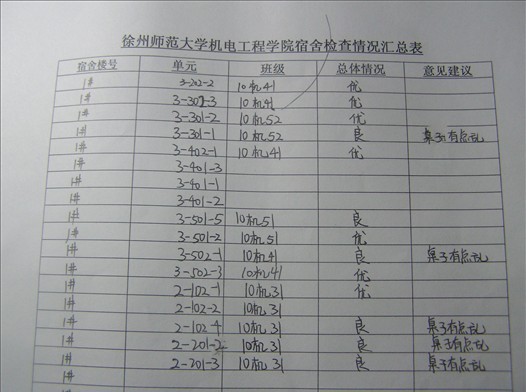 徐州师范大学机电工程学院宿舍检查情况汇总表
宿舍楼号 单元 班级 总体情况 意见建议
1# 3-202-2 10机41 优
1# 3-302-3 10机41 优
1# 3-301-2 10机52 优
1# 3-301-1 10机52 良 桌子有点乱
1# 3-402-1 10机41 优
1# 3-401-3
1# 3-401-1
1# 3-401-2
1# 3-501-5 10机51 良
1# 3-501-2 10机51 优
1# 3-502-1 10机41 良 桌子有点乱
1# 3-502-3 10机41 优
1# 2-102-1 10机31 优
1# 2-102-2 10机31
1# 2-102-4 10机31 良 桌子有点乱
1# 2-201-2 10机31 良 桌子有点乱
1# 2-201-3 10机31 良 桌子有点乱
1#